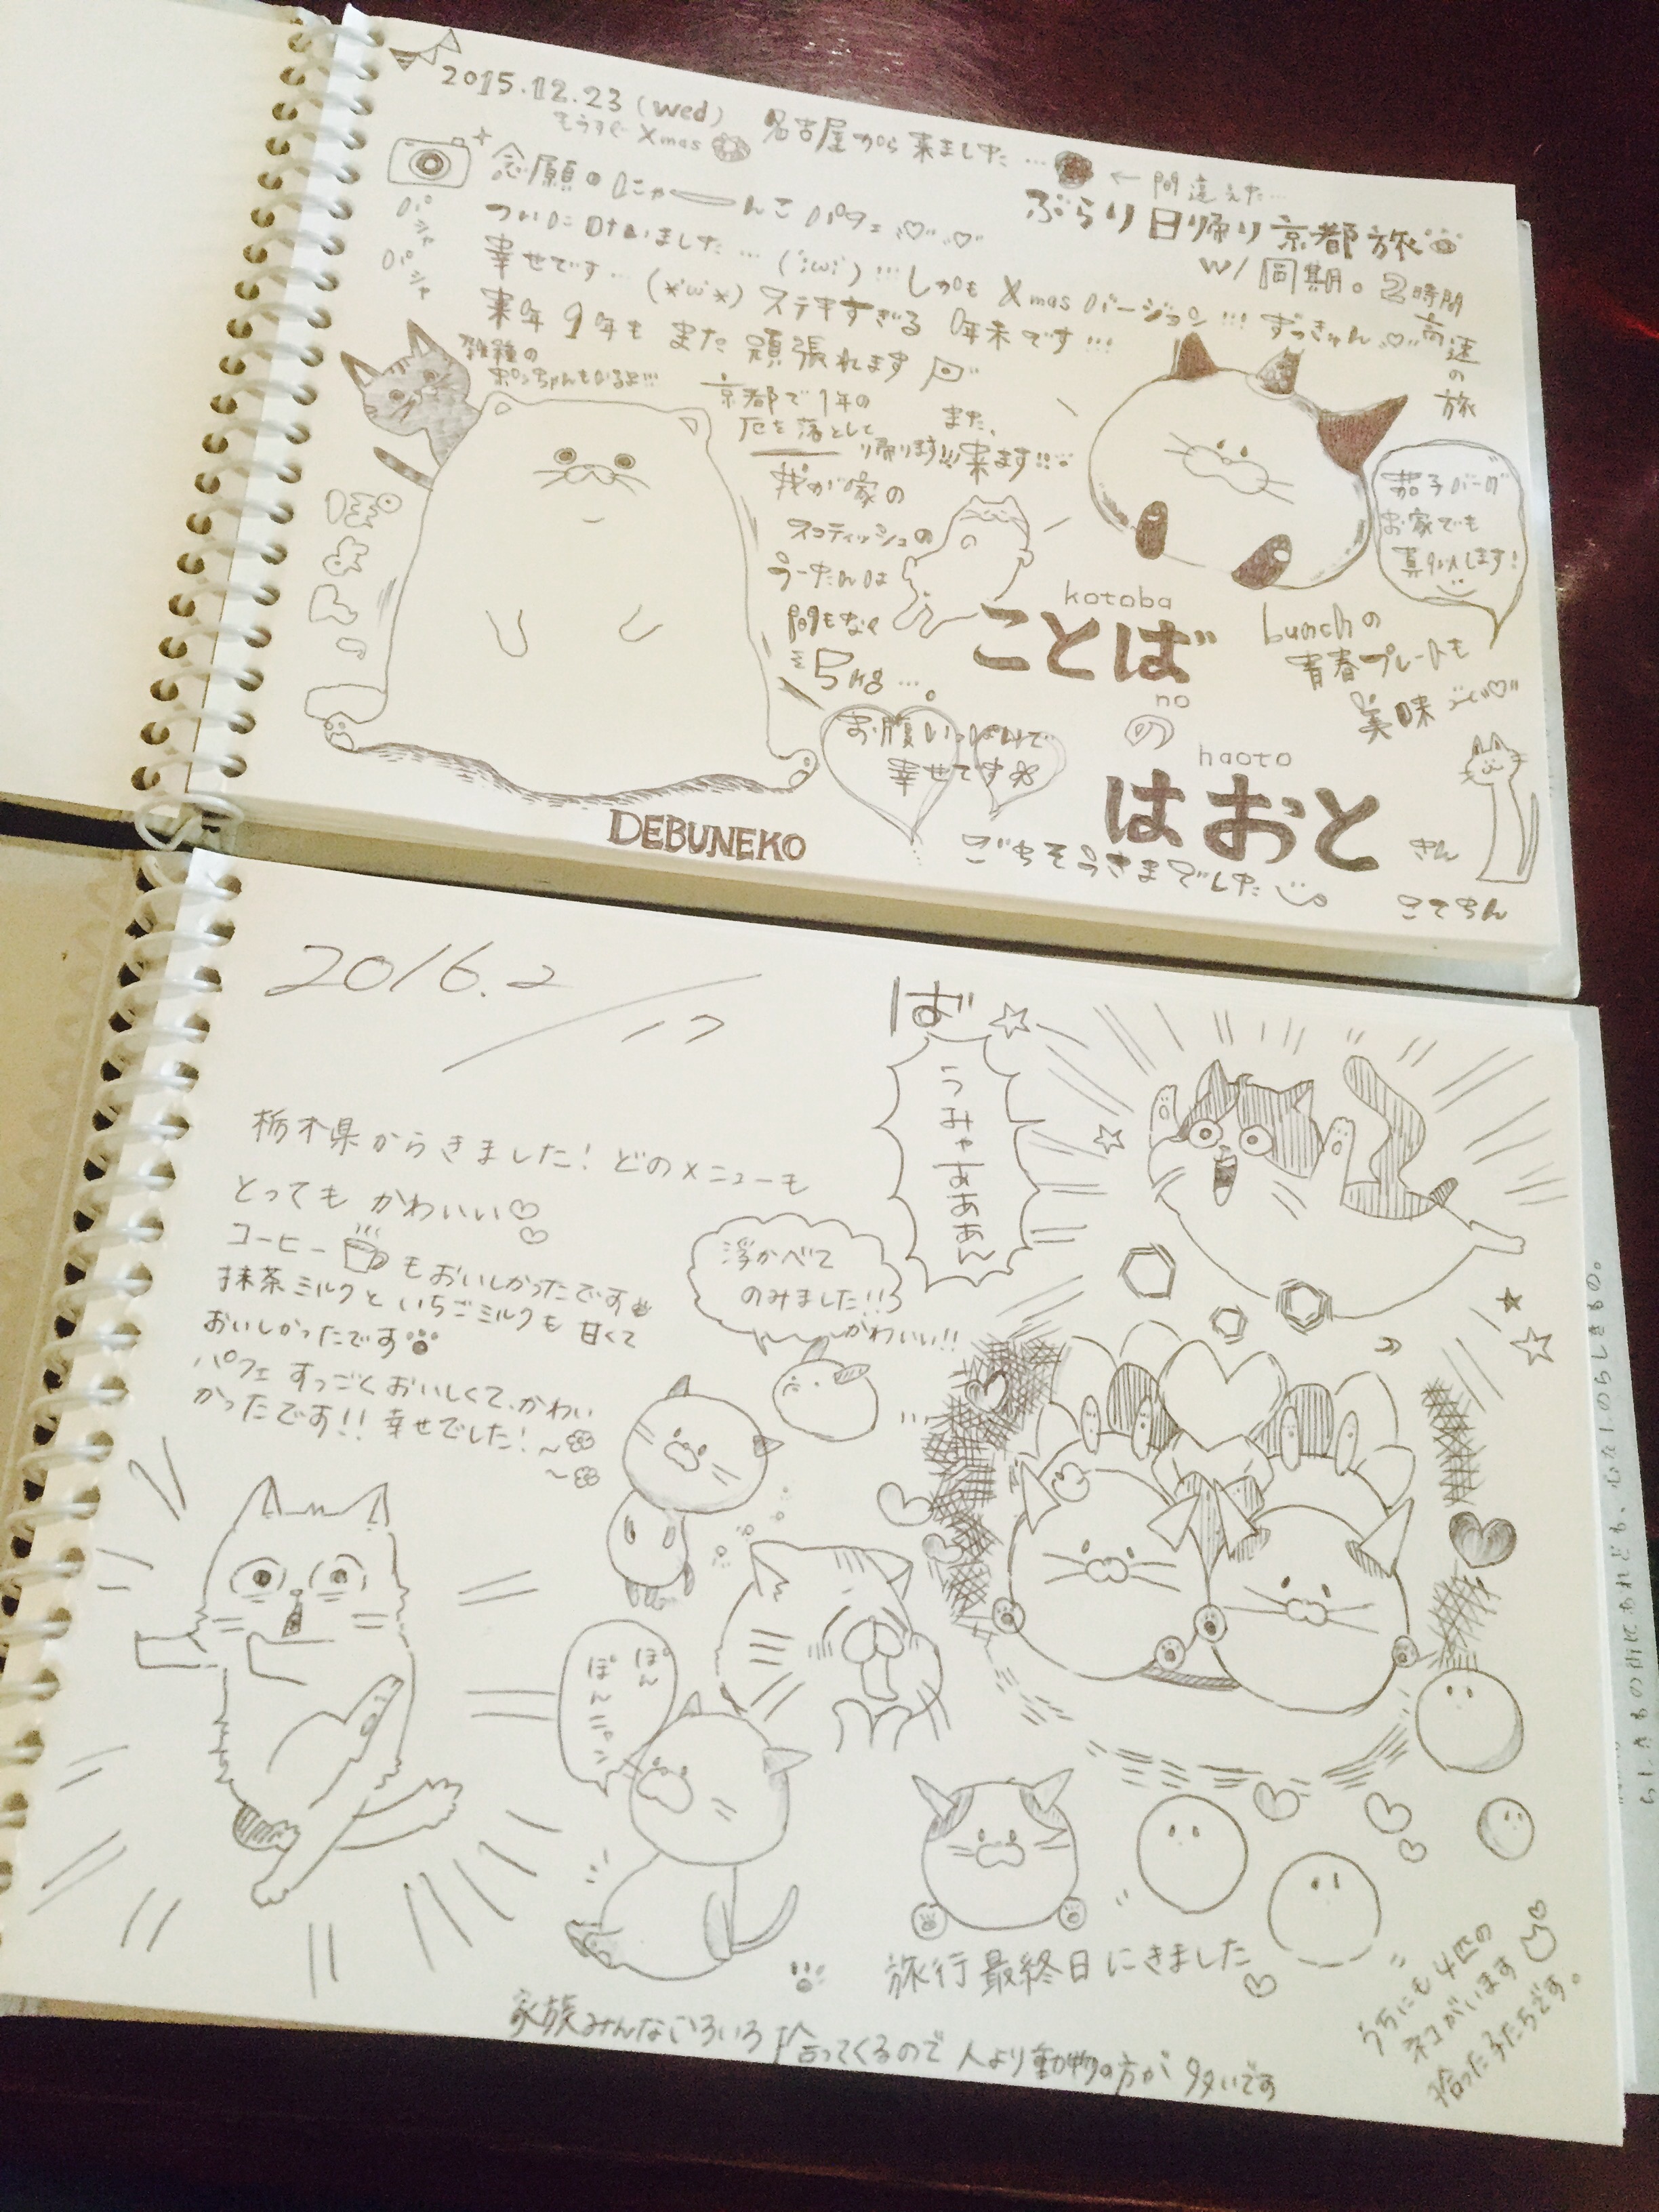 2015.12.23 (Wed) 名古屋から来ました…
もうすぐ Xmas
← 間違えた…
念願のにゃーんこパフェ
ぶらり日帰り京都旅
ついに叶いました… (;ω;) !!! しかも Xmas バージョン!!! ずっきゅん
w/ 同期。2時間
高速の旅
幸せです… (*'ω'*) ステキすぎる年末です!!!
来年1年もまた頑張れます
パシャ
パシャ
雑種の
ポンちゃんもいるよ!!!
京都で1年の
厄を落として
帰ります!!!
また、
来ます!!
我が家の
スコティッシュの
うーたんは
間もなく
5kg…。
茄子バーグ
お家でも
真似します!
bunchの
青春プレートも
美味
kotoba
ことば
no
の
haoto
はおと
お腹いっぱいで
幸せです
ごちそうさまでした
DEBUNEKO
きん
こてちん
2016.2
ば
うみゃあああ~
栃木県からきました! どのメニューも
とっても かわいい♡
コーヒー もおいしかったです
抹茶ミルクといちごミルクも 甘くて
おいしかったです
パフェ すっごくおいしくて、かわい
かったです!! 幸せでした!~
浮かべて
のみました!!
かわいい!!
ぽん
ぽーん
旅行最終日にきました♡
家族みんないろいろ拾ってくるので 人より動物の方が多いです
うちにも4匹の
ネコがいます
拾った子たちです。